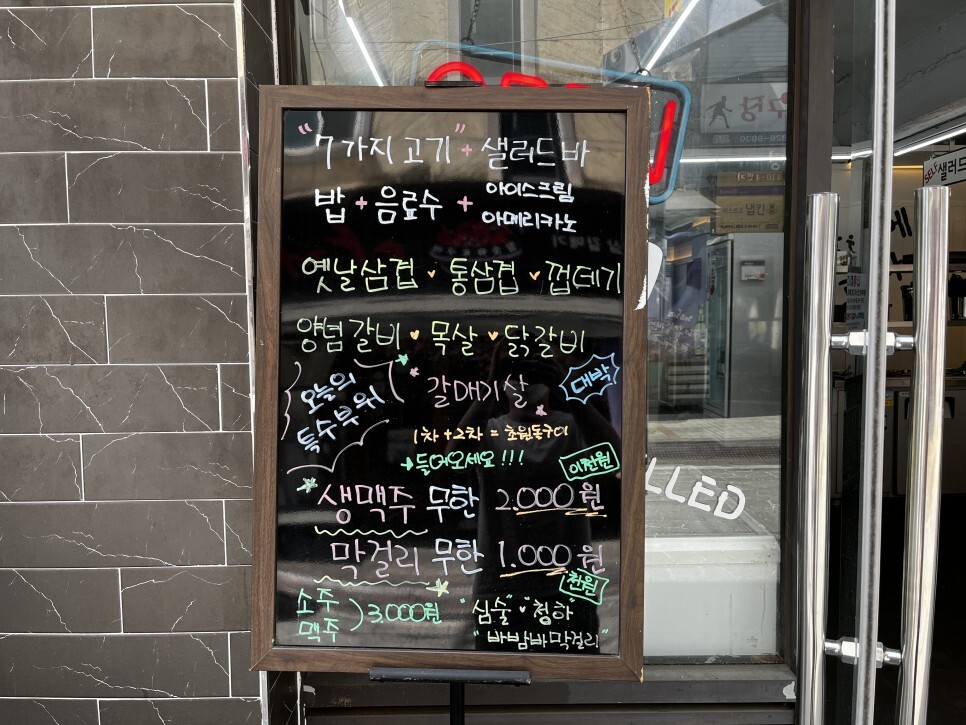 "7가지 고기" + 샐러드 바
밥 + 음료수 + 아이스크림
아메리카노
옛날삼겹 · 통삼겹 · 껍데기
양념갈비 · 목살 · 닭갈비
오늘의
특수부위
갈매기살
대박
1차+2차 = 초원돌구이
→들어오세요!!!
이천원
생맥주 무한 2.000원
막걸리 무한 1.000원
천원
소주
맥주
) 3.000원
"심술" · "청하"
"바밤바막걸리"
LLED
SELF 샐러드
냅킨